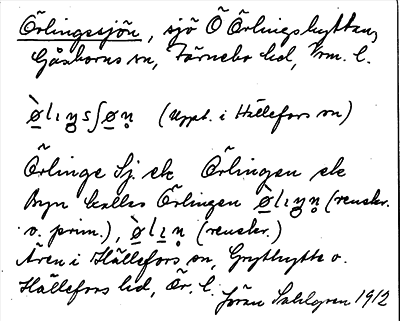 Örlingssjön, sjö Ö Örlingshyttan,
Gåsborns sn, Färnebo hd, Vrm. l.
ø̀lıŋsʃøn̥ (uppt. i Hällefors sn)
Örlinge Sj. ek Örlingen ek
Byn kallas Örlingen ø̀lıŋn̥ (renskr.
o. prim.), ø̀lın̥ (renskr.)
Även i Hällefors sn, Grythytte o.
Hällefors hd, Ör. l.
Jöran Sahlgren 1912